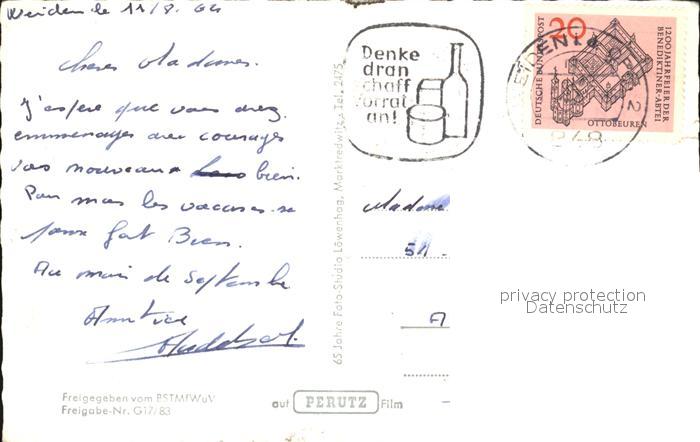 Weiden le 11/9. 64
Chères Madames.
J'espère que vous avez
emménagés avec courages
vos nouveaux bien.
Pour moi les vacances se
passe fort Bien.
Au mois de Septembre
Amitiés
Denke
dran
schaff
Vorrat
an!
WEIDEN
848
20
DEUTSCHE BUNDESPOST
1200 JAHRFEIER DER
BENEDIKTINER-ABTEI
OTTOBEUREN
Madame
51 -
A
privacy protection
Datenschutz
65 Jahre Foto-Studio Löwenhag, Marktredwitz, Tel. 2475
Freigegeben vom BSTMfWuV
Freigabe-Nr. G17/83
auf PERUTZ Film